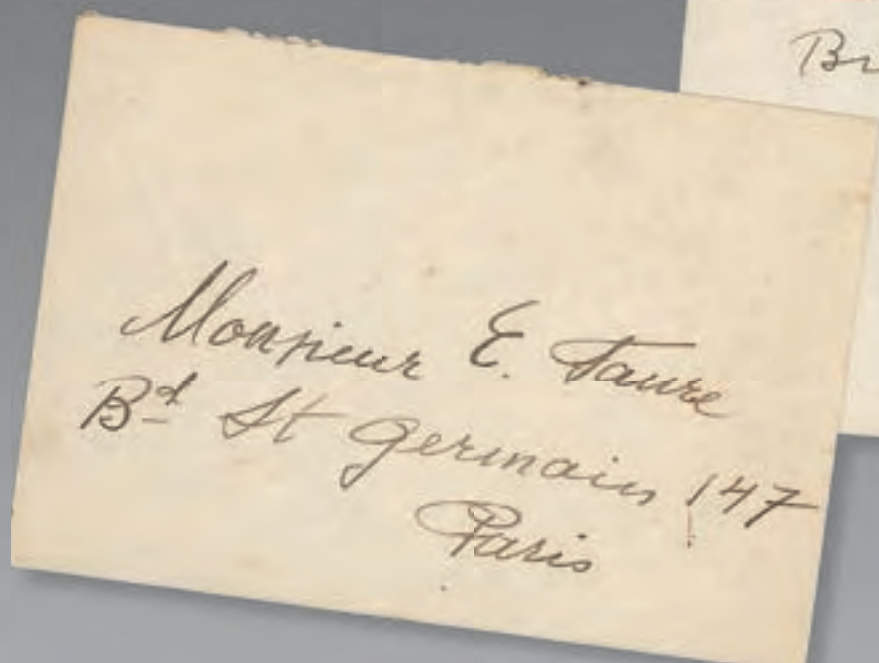 Br
Monsieur E. Faure
Bd St Germain 147
Paris